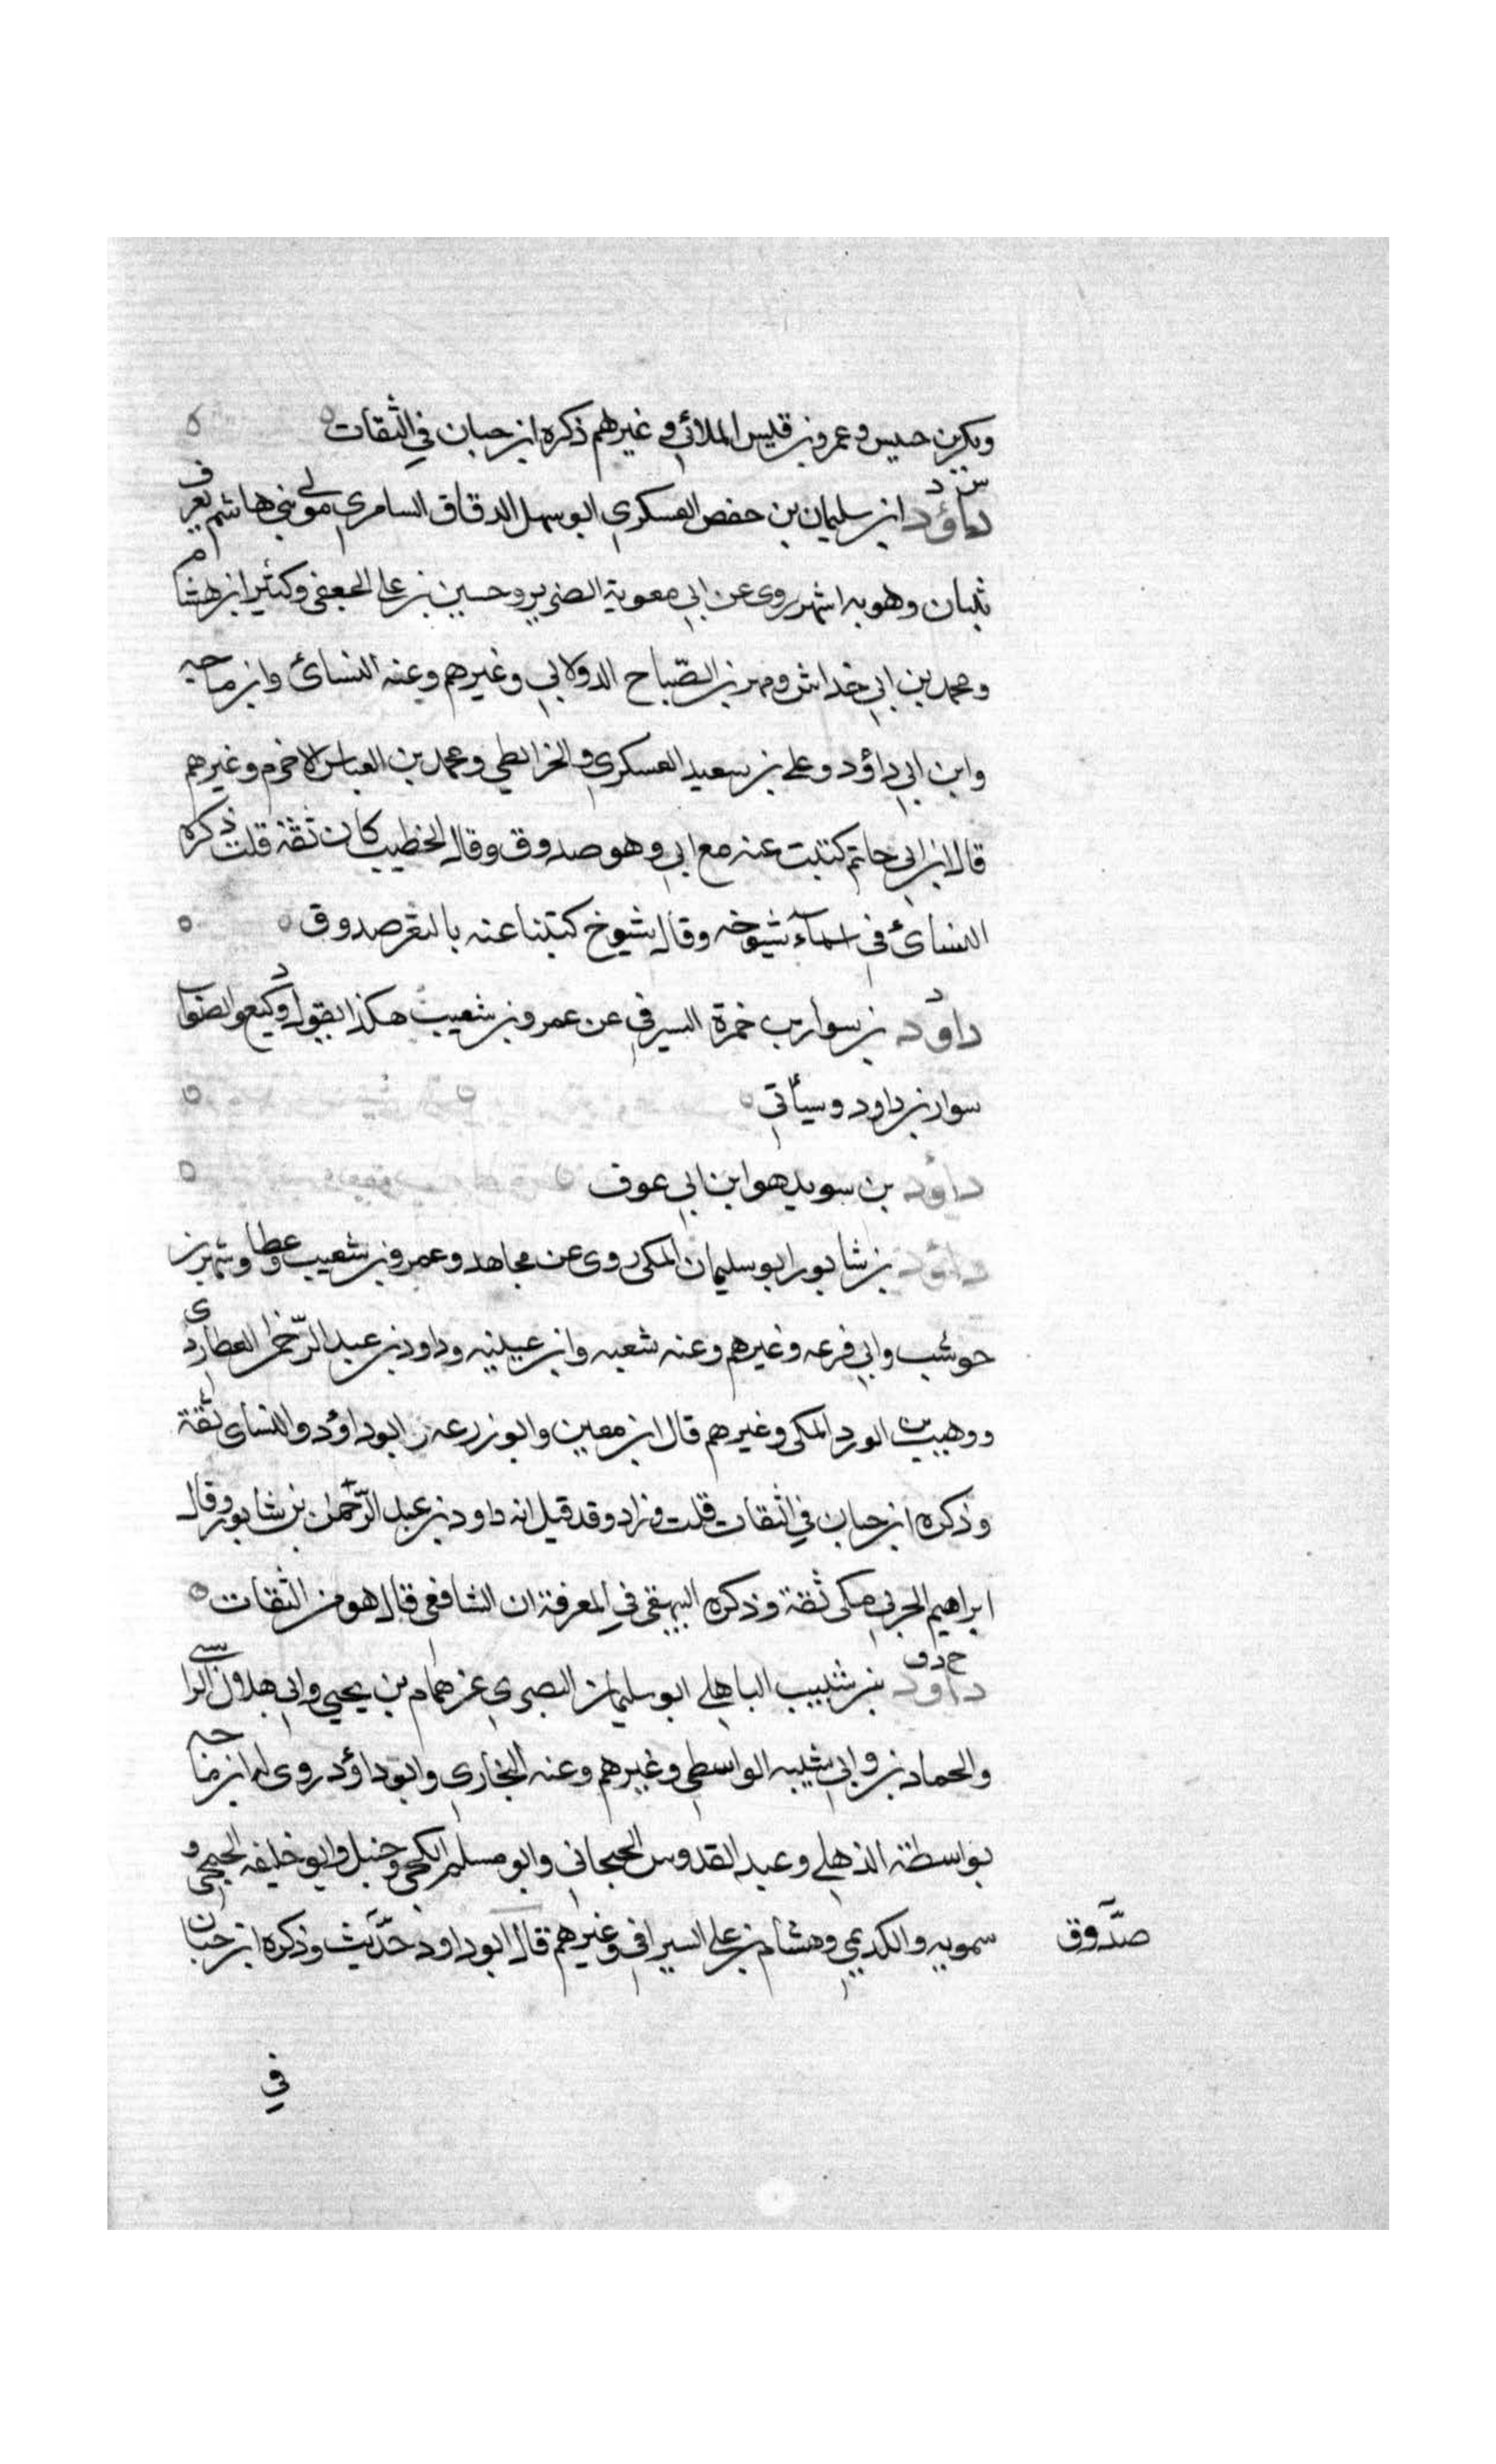 وبكر بن حبيس وعمرو بن قيس الملائي وغيرهم ذكره ابن حبان في الثقات
س د
داؤد ابن سليمان بن حفص العسكري ابو سهل الدقاق السامري مولى بني هاشم يعرف
ببنان وهو به اشهر روى عن ابي معوية الضرير وحسين بن علي الجعفي وكثير ابن هشام
ومحمد بن ابي خداش ومحمد بن الصّباح الدولابي وغيرهم وعنه النسائ وابن ماجه
وابن ابي داؤد وعلي بن سعيد العسكري والخرائطي ومحمد بن العباس الاخرم وغيرهم
قال ابن ابي حاتم كتبت عنه مع ابي وهو صدوق وقال الخطيب كان ثقة قلت ذكره
النسائ في اسمآء شيوخه وقال شيوخ كتبنا عنه بالثغر صدوق
د
داود بن سوار بن حمزة السيرفي عن عمرو بن شعيب هكذا يقول وكيع والصواب
سوار بن داود وسيأتي
داؤد بن سويد هو ابن ابي عوف
داؤد بن شابور ابو سليمان المكي روى عن مجاهد وعمرو بن شعيب وعطا وشهر بن
حوشب وابي قزعه وغيرهم وعنه شعبه وابن عيينه وداود بن عبد الرّحمن العطاردي
ووهيب بن الورد المكي وغيرهم قال ابن معين وابو زرعه وابو داؤد والنسائ ثقة
وذكره ابن حبان في الثقات قلت وزاد وقد قيل انه داود بن عبد الرّحمن بن شابور وقال
ابراهيم الحربي مكي ثقة وذكره البيهقي في المعرفة ان الشافعي قال هو من الثقات
خ د ق
داود بن شبيب الباهلي ابو سليمان البصري عن همام بن يحيى وابي هلال الراسبي
والحمادين وابي شيبه الواسطي وغيرهم وعنه البخاري وابو داؤد روى له ابن ماجه
بواسطة الذهلي وعبد القدوس الحبحابي وابو مسلم الكجي وحنبل وابو خليفه الجمحي و
سمويه والكديمي وهشام بن علي السيرافي وغيرهم قال ابو داود حدّيث وذكره ابن حبان
صدّوق
في